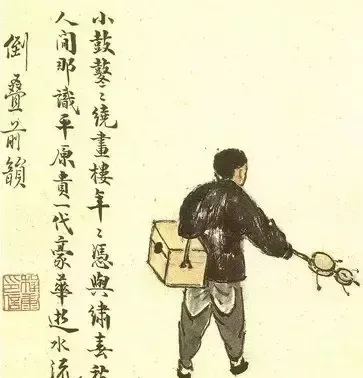 小鼓鼕〻繞畫樓年〻憑與繡春
人間那識平原貴一代豪華逝水流
倒疊前韻